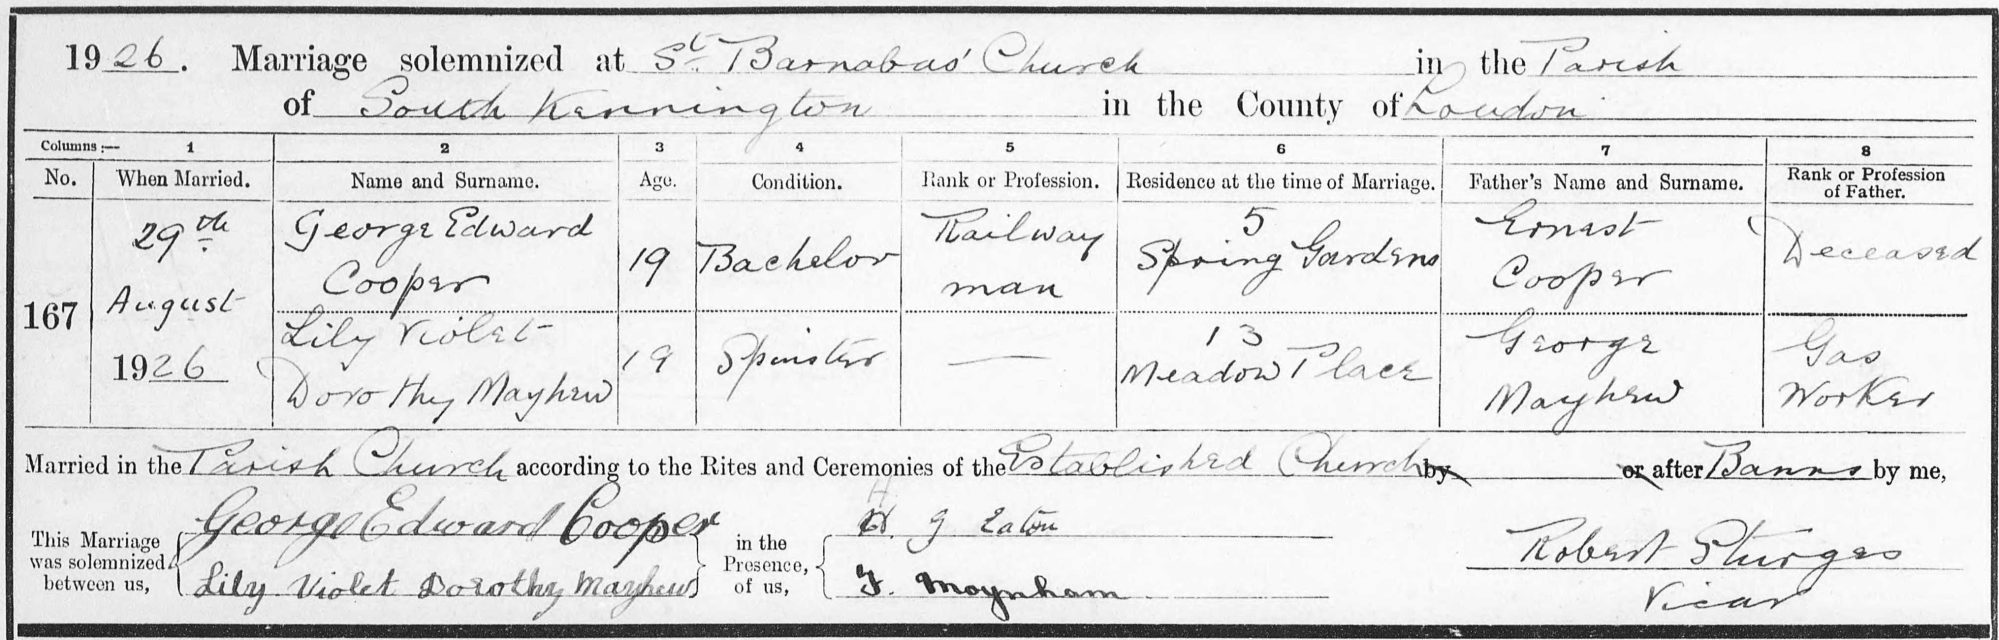 1926. Marriage solemnized at St. Barnabas' Church in the Parish
of South Kennington in the County of London
Columns :— 1 2 3 4 5 6 7 8
No. When Married. Name and Surname. Age. Condition. Rank or Profession. Residence at the time of Marriage. Father's Name and Surname. Rank or Profession of Father.
167
29th
August
1926
George Edward
Cooper
19
Bachelor
Railway
man
5
Spring Gardens
Ernest
Cooper
Deceased
Lily Violet
Dorothy Mayhew
19
Spinster
—
13
Meadow Place
George
Mayhew
Gas
Worker
Married in the Parish Church according to the Rites and Ceremonies of the Established Church by or after Banns by me,
This Marriage
was solemnized
between us,
George Edward Cooper
Lily Violet Dorothy Mayhew
in the
Presence,
of us,
H. G Eaton
F. Moynham
Robert Sturges
Vicar